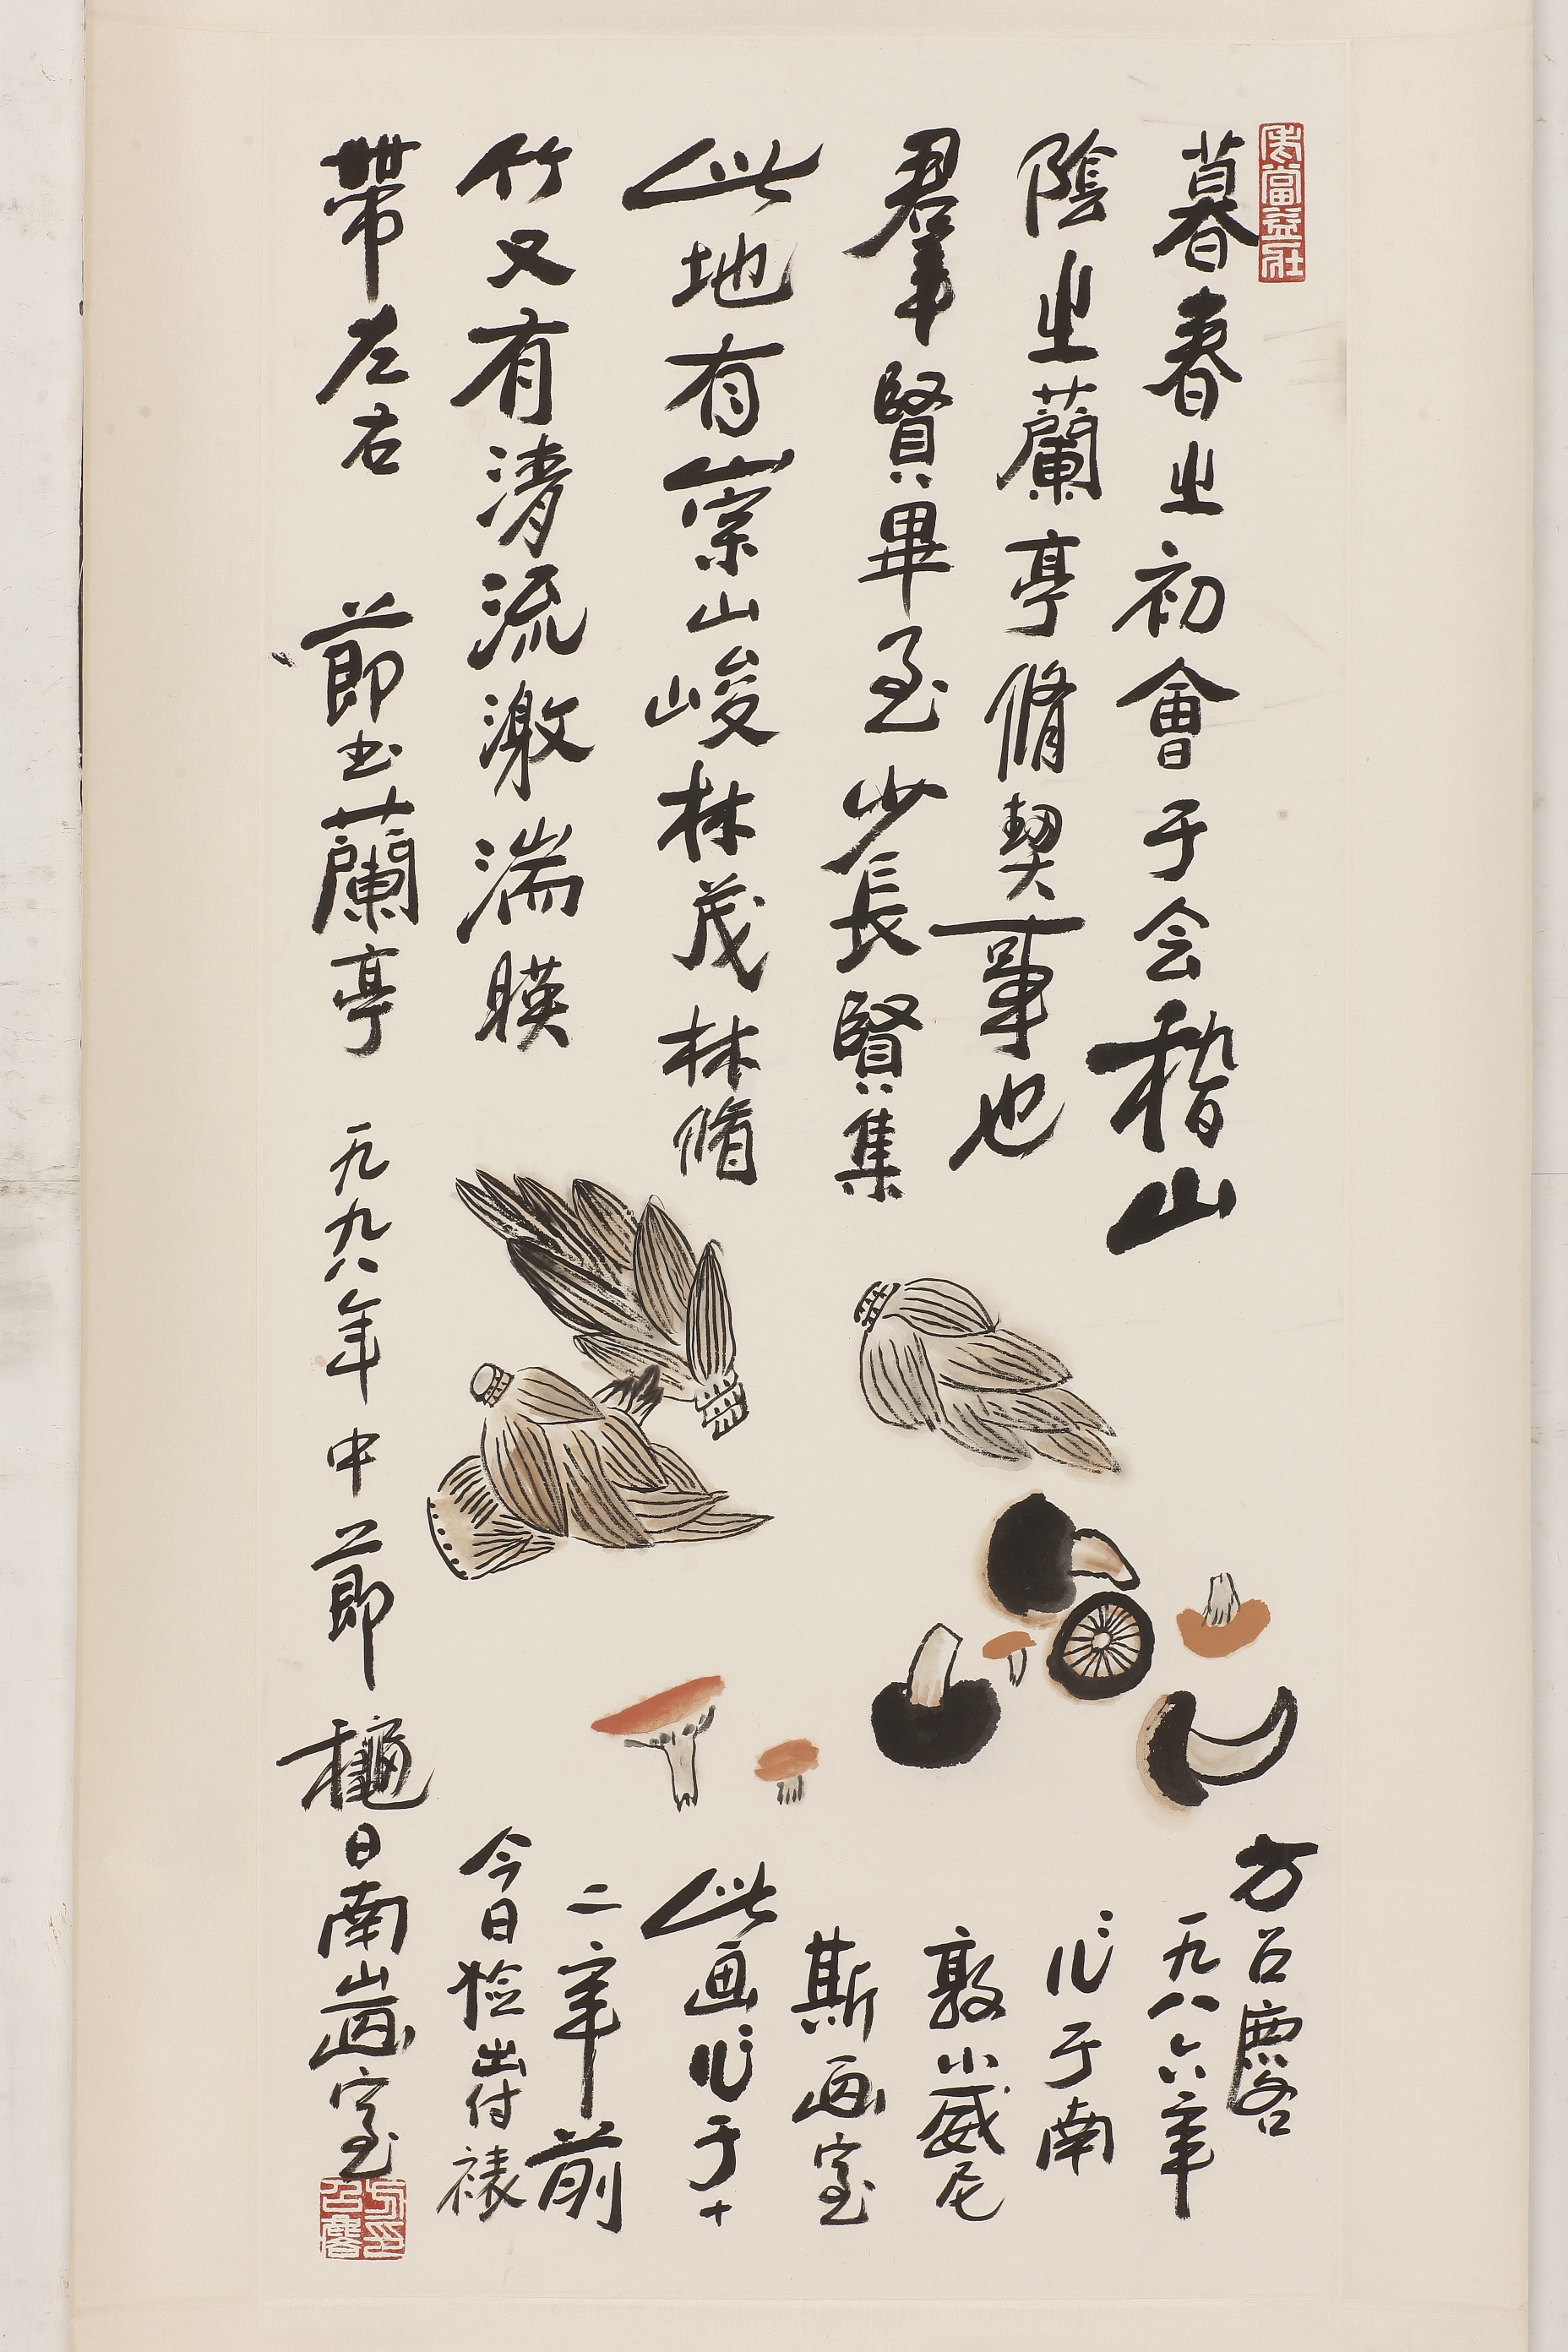 老當益壯
暮春之初會于会稽山
陰之蘭亭脩契事也
羣賢畢至少長賢集
此地有崇山峻林茂林脩
竹又有清流激湍暎
帶左右 節书蘭亭 一九九八年中節龝日南山画室
方召麐
一九八六年
作于南
敦小威尼
斯画室
此画作于十
二年前
今日捡出付裱
方印召麐